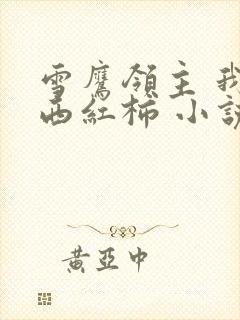 雪鷹領主 我
西紅柿 小說
黃亞中